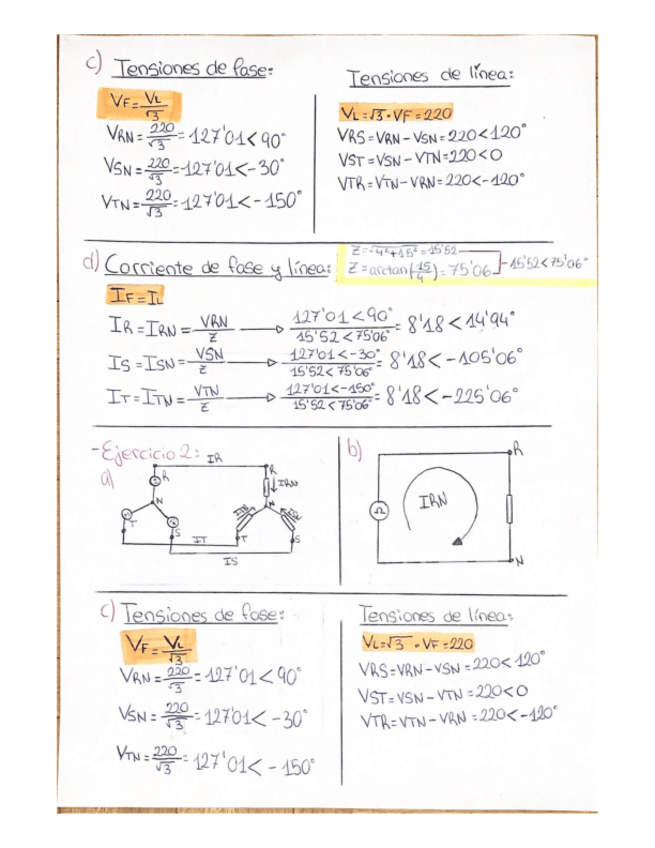 c) Tensiones de fase:
VF = VL/√3
VRN = 220/√3 = 127'01 < 90°
VSN = 220/√3 = 127'01 < -30°
VTN = 220/√3 = 127'01 < -150°
Tensiones de línea:
VL = √3 · VF = 220
VRS = VRN - VSN = 220 < 120°
VST = VSN - VTN = 220 < 0
VTR = VTN - VRN = 220 < -120°
d) Corriente de fase y línea:
Z = √4²+15² = 15'52
Z = arctan(15/4) = 75'06
15'52 < 75'06°
IF = IL
IR = IRN = VRN/Z → 127'01 < 90° / 15'52 < 75'06° = 8'18 < 14'94°
IS = ISN = VSN/Z → 127'01 < -30° / 15'52 < 75'06° = 8'18 < -105'06°
IT = ITN = VTN/Z → 127'01 < -150° / 15'52 < 75'06° = 8'18 < -225'06°
- Ejercicio 2:
a)
IR
R
R
IRN
N
N
T
S
T
S
IT
IS
b)
R
IRN
N
c) Tensiones de fase:
VF = VL/√3
VRN = 220/√3 = 127'01 < 90°
VSN = 220/√3 = 127'01 < -30°
VTN = 220/√3 = 127'01 < -150°
Tensiones de línea:
VL = √3 · VF = 220
VRS = VRN - VSN = 220 < 120°
VST = VSN - VTN = 220 < 0
VTR = VTN - VRN = 220 < -120°